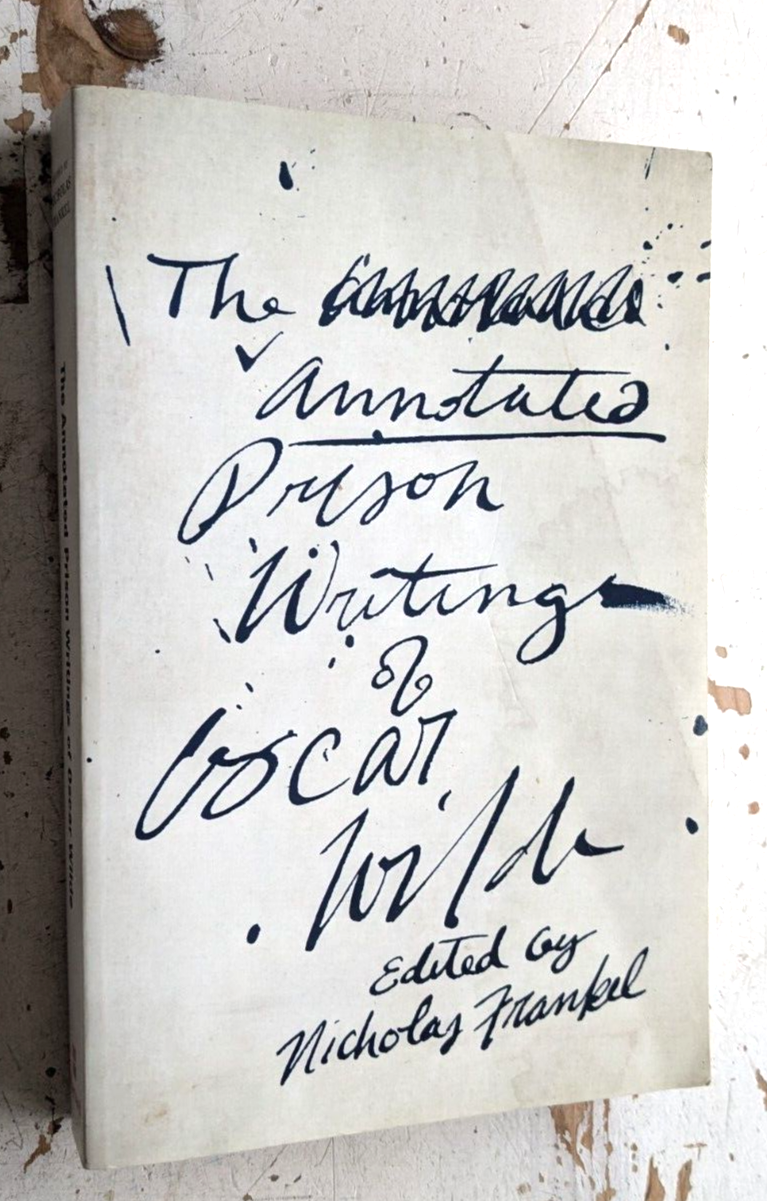 The
Annotated
Prison
Writings
of
Oscar
Wilde
Edited by
Nicholas Frankel
The Annotated Prison Writings of Oscar Wilde
NICHOLAS
FRANKEL